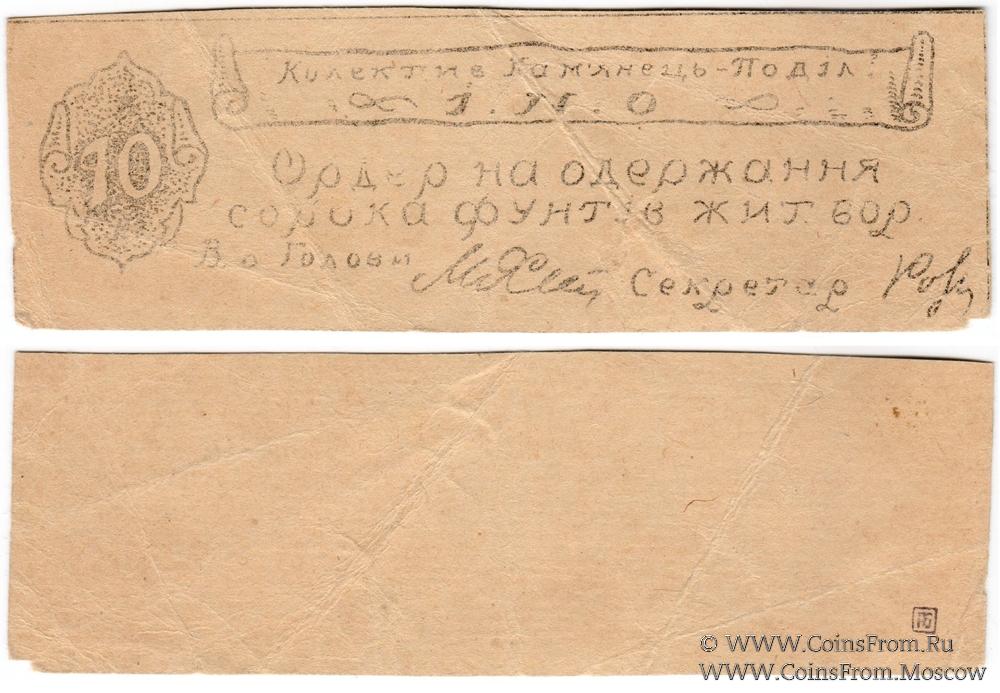 Колектив Кам'янець-Поділ.
І.Н.О
10
Ордер на одержання
сорока фунтів жит. бор.
В о Голови Секретар
© WWW.CoinsFrom.Ru
WWW.CoinsFrom.Moscow